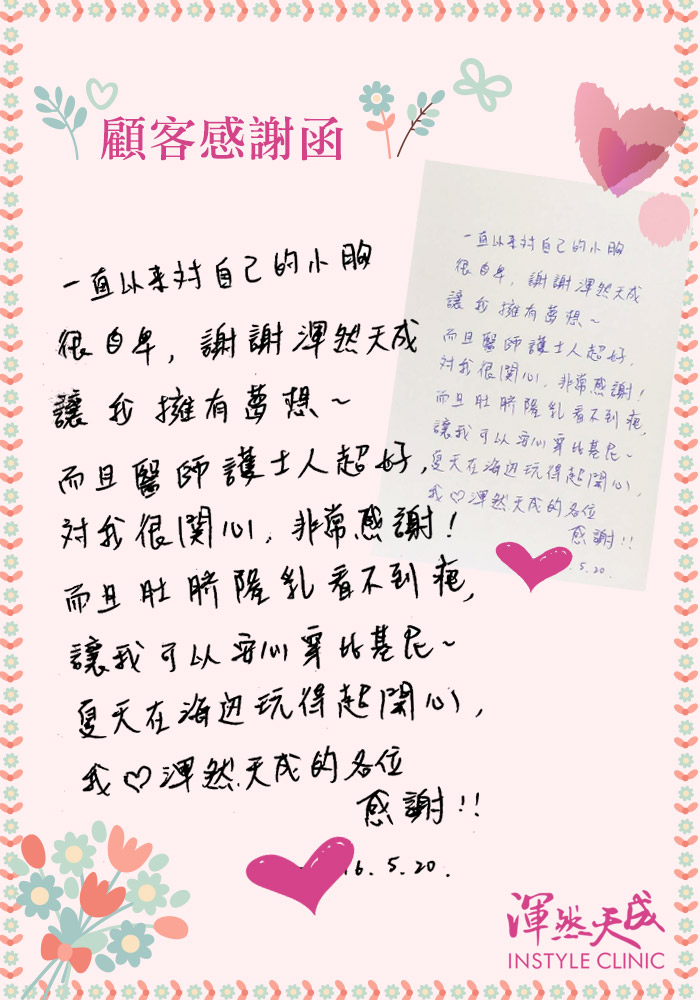 顧客感謝函
一直以來対自己的小胸
很自卑，謝謝渾然天成
讓我擁有夢想～
而且醫師護士人超好，
対我很関心，非常感謝！
而且肚臍隆乳看不到疤，
讓我可以安心穿比基尼～
夏天在海边玩得超開心，
我♡渾然天成的各位
感謝!!
16.5.20.
一直以來対自己的小胸
很自卑，謝謝渾然天成
讓我擁有夢想～
而且醫師護士人超好，
対我很関心，非常感謝！
而且肚臍隆乳看不到疤，
讓我可以安心穿比基尼～
夏天在海边玩得超開心，
我♡渾然天成的各位
感謝!!
5.20.
渾然天成
INSTYLE CLINIC